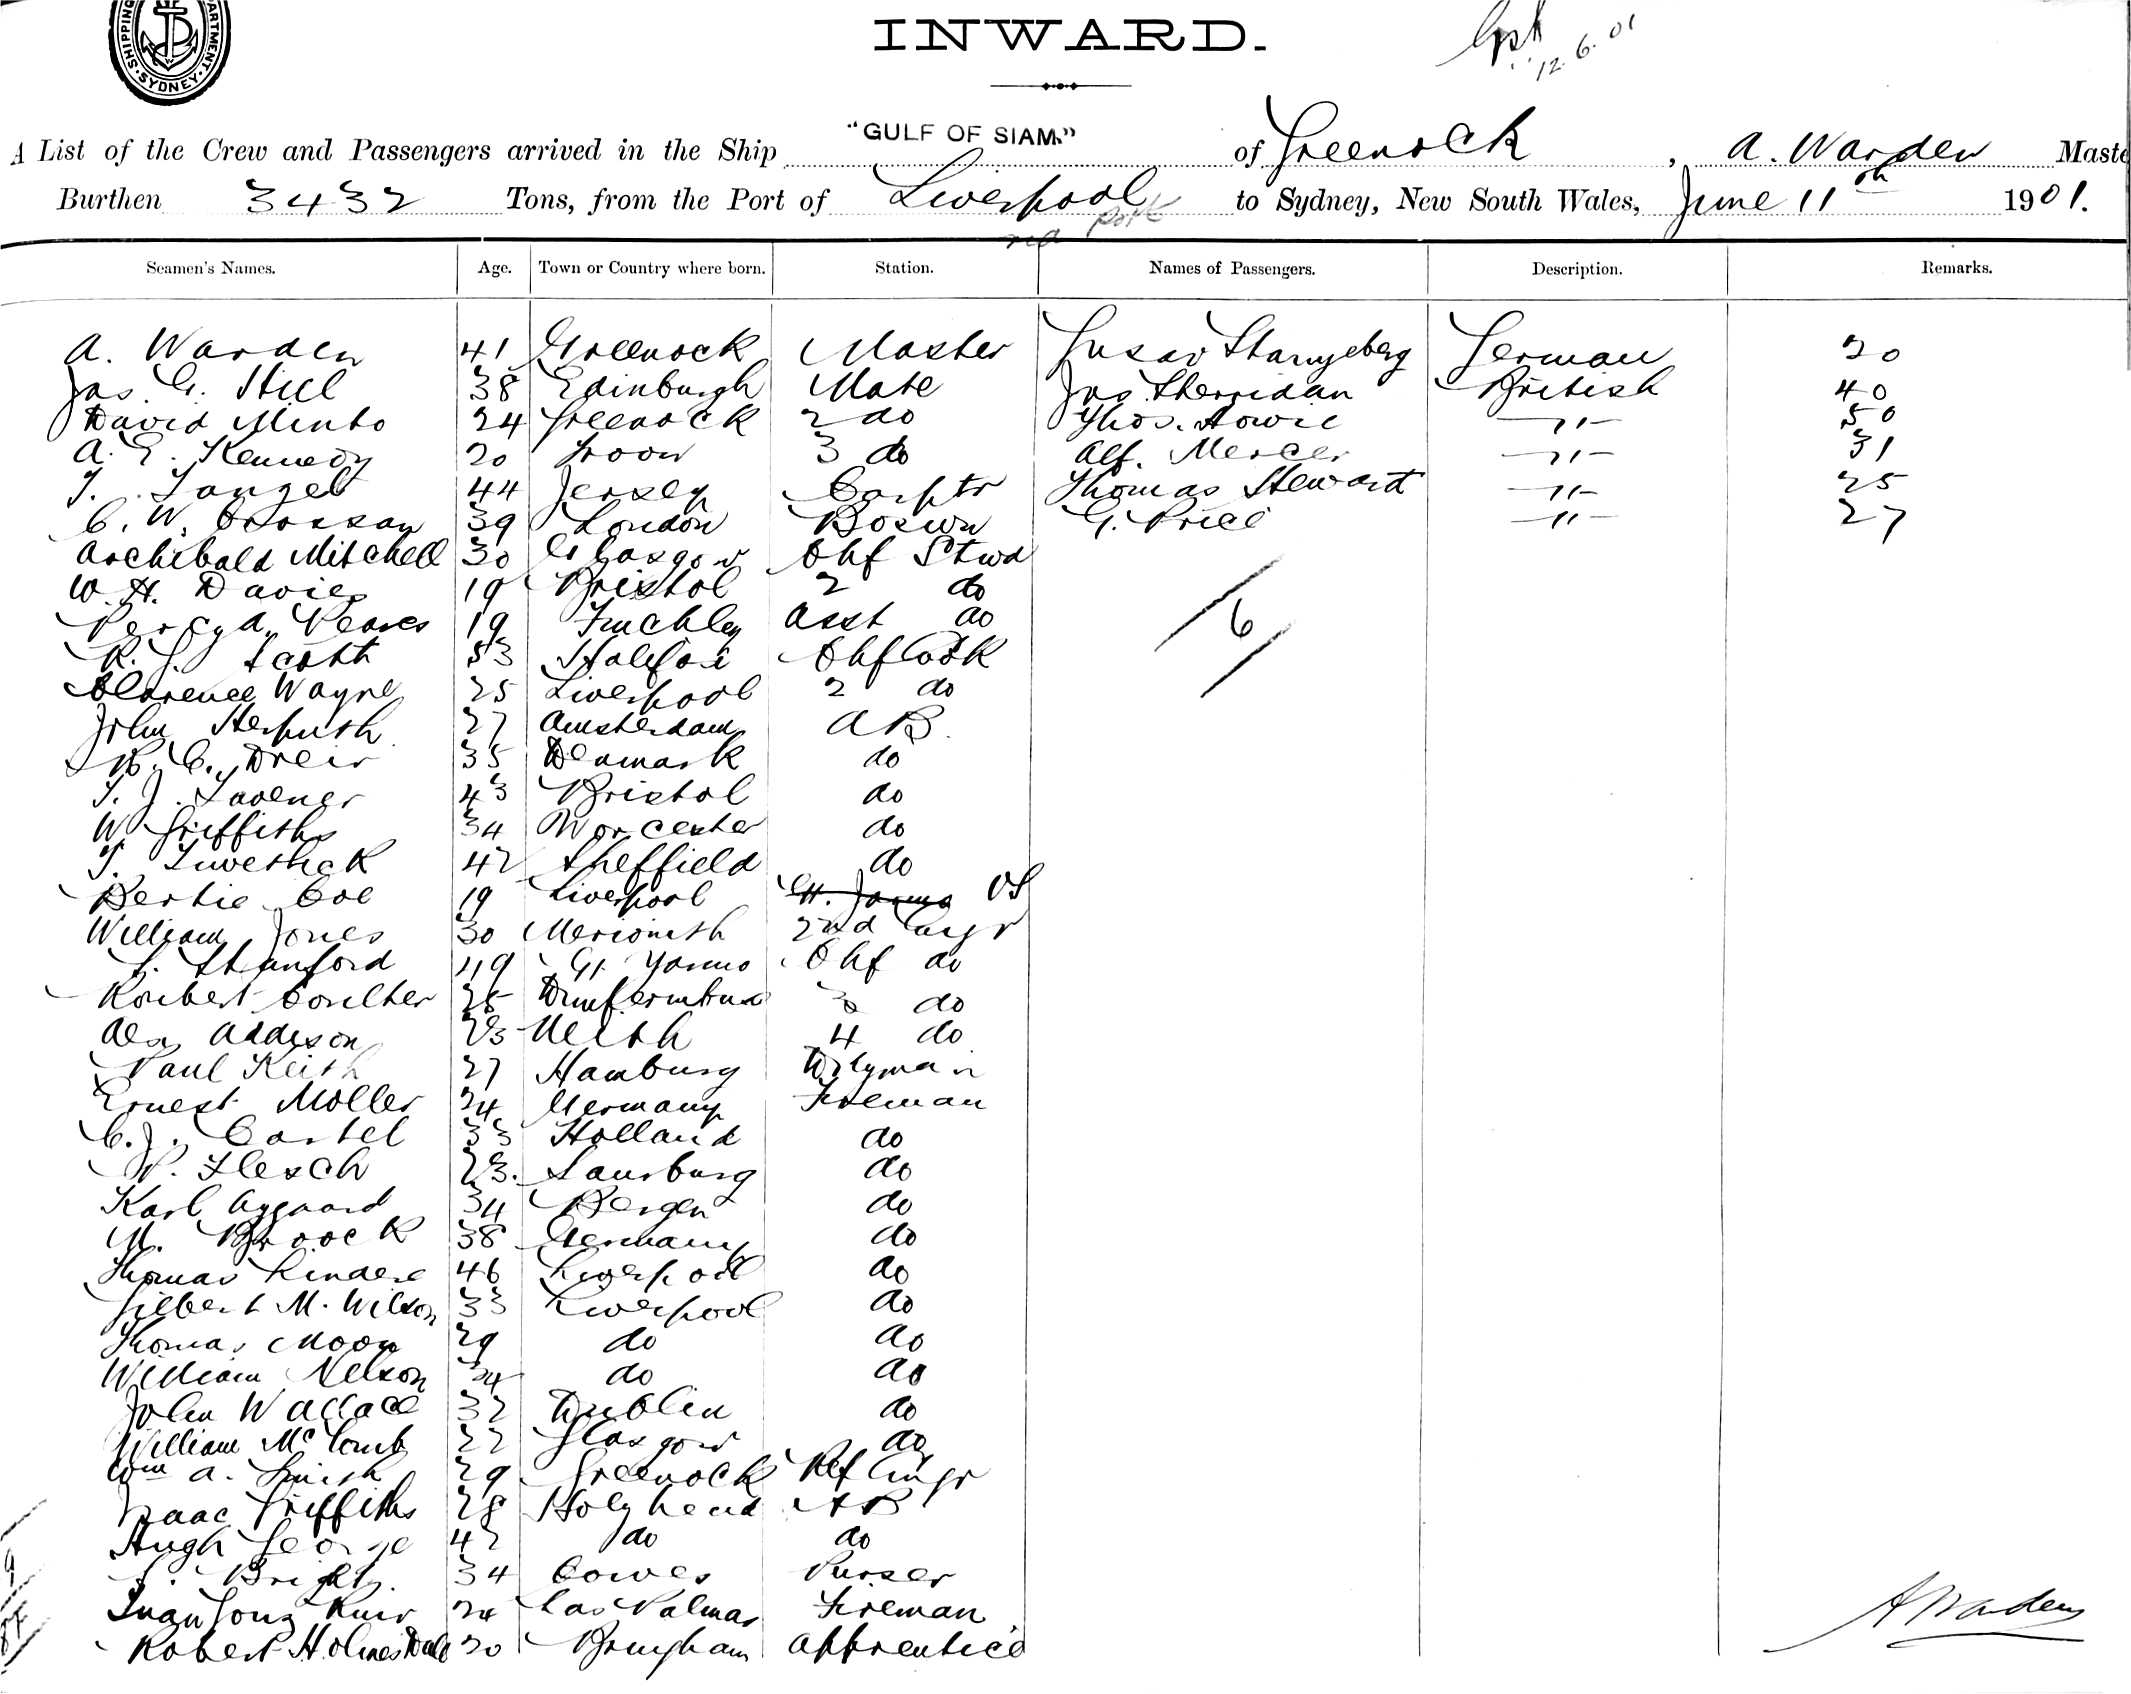 SHIPPING DEPARTMENT. SYDNEY
INWARD.
12.6.01
A List of the Crew and Passengers arrived in the Ship "GULF OF SIAM." of Greenock, A. Warden Maste
Burthen 3432 Tons, from the Port of Liverpool to Sydney, New South Wales, June 11th 1901.
via port
Seamen's Names. Age. Town or Country where born. Station. Names of Passengers. Description. Remarks.
A. Warden 41 Greenock Master German 20
Jas. G. 38 Edinburgh Mate Jas Sherridan British 40
David Minto 24 Greenock 2 do Thos. Howie —"— 50
A. E. Kennedy 20 Troon 3 do Alf. Mercer —"— 31
44 Jersey Carptr Thomas Stewart —"— 25
C. W. Crossan 39 London Boswn G. Price —"— 27
Archibald Mitchell 30 Glasgow Chf Stwd
W. H. Davies 19 Bristol 2 do
Percy A. 19 Finchley Asst do 6
R. J. Scott 53 Halifax Chf Cook
Clarence Wayne 25 Liverpool 2 do
John 27 Amsterdam AB.
C. Dreir 35 Denmark do
T. J. Tavener 43 Bristol do
W. Griffiths 34 Worcester do
T. 42 Sheffield do
Bertie Coe 19 Liverpool OS
William Jones 30 Merioneth 2nd Engr
Stanford 49 Gt. Yarmo Chf do
Robert Coulter 25 3 do
Alex Addison 23 Leith 4 do
Paul Keith 27 Hamburg
Ernest Moller 24 Germany Fireman
C. J. Castel 33 Holland do
W. Flesch 23. do
Karl Aygaard 34 Bergen do
M. Broock 38 Germany do
Thomas 46 Liverpool do
Gilbert M. Wilson 33 Liverpool do
Thomas Moon 29 do do
William Nelson 34 do do
John Wallace 32 Dublin do
William McComb 22 Glasgow do
Wm A. Smith 29 Greenock Ref Engr
Isaac Griffiths 28 Holyhead AB
Hugh George 42 do do
Bright. 34 Cowes Purser
24 Las Palmas Fireman
Robert Holmes Dale 20 Apprentice
A Warden